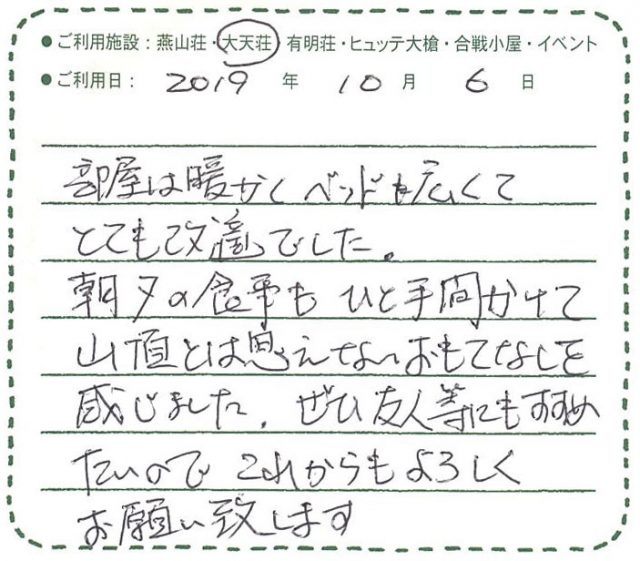 ●ご利用施設：燕山荘・大天荘・有明荘・ヒュッテ大槍・合戦小屋・イベント
●ご利用日： 2019 年 10 月 6 日
部屋は暖かくベッドも広くて
とても改適でした。
朝夕の食事も ひと手間かけて
山頂とは思えないおもてなしを
感じました。ぜひ友人等にもすすめ
たいので これからもよろしく
お願い致します